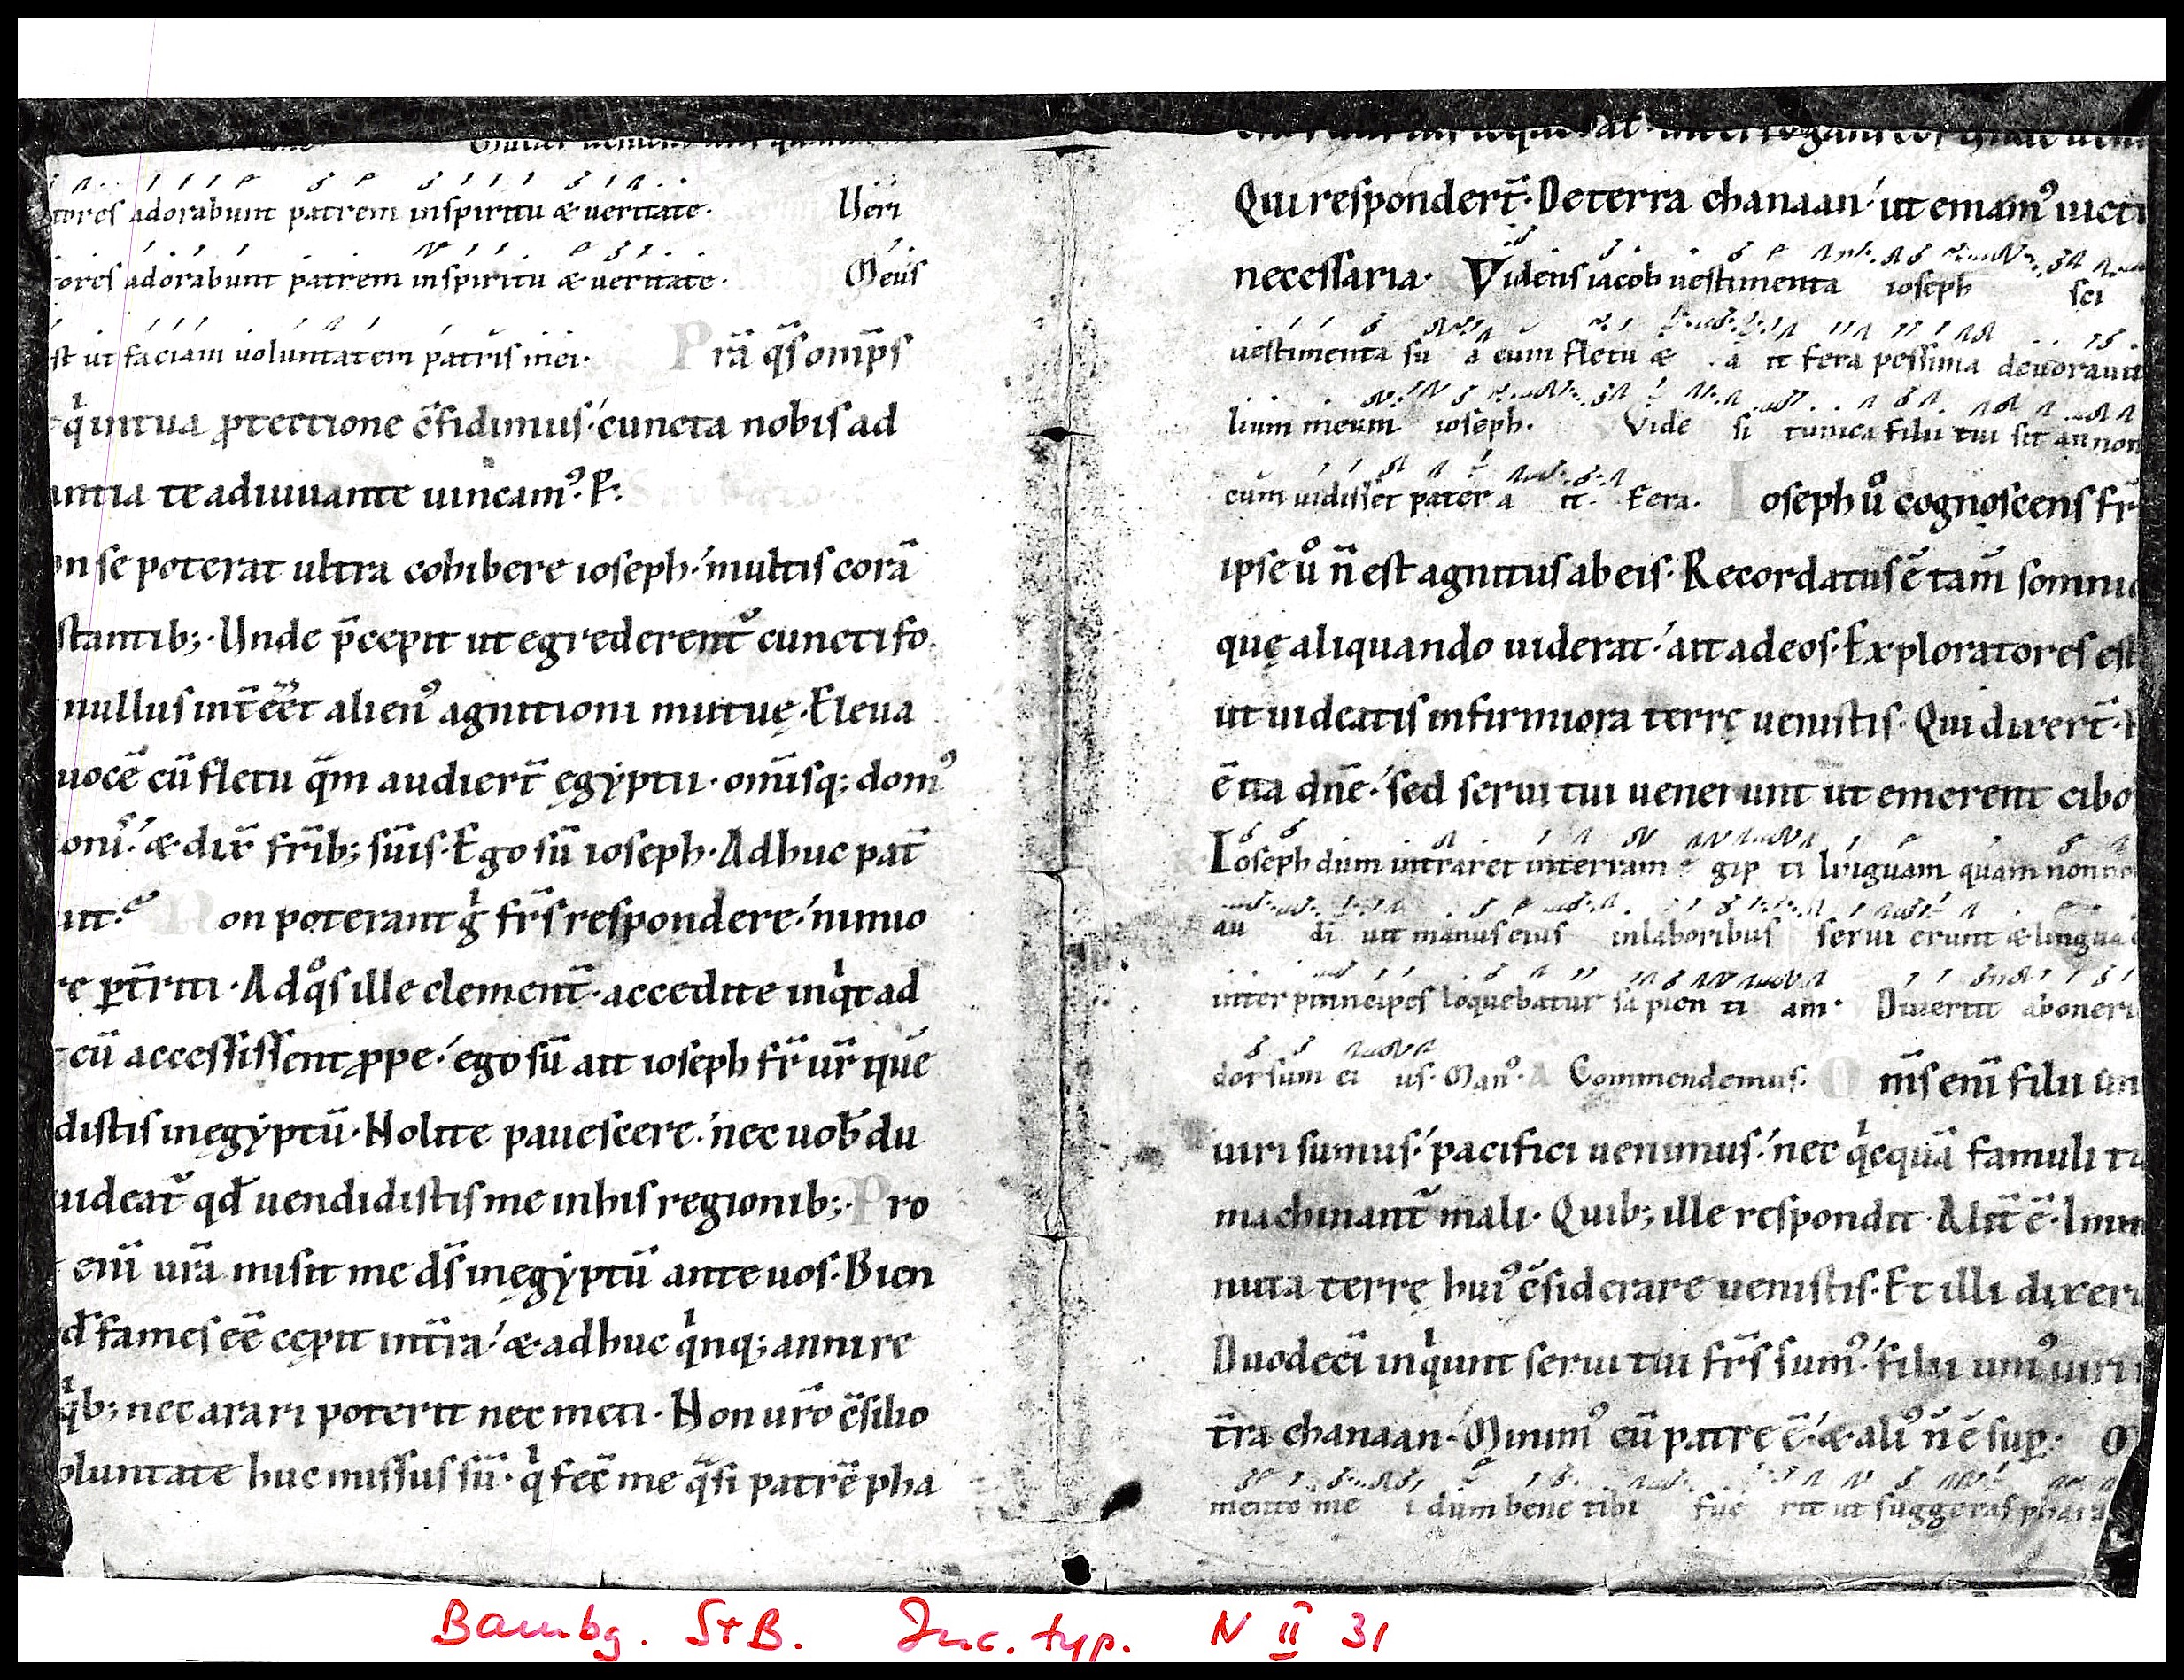 tores adorabunt patrem inspiritu & ueritate· Ueri
tores adorabunt patrem inspiritu & ueritate· Meus
st ut faciam uoluntatem patris mei· P rā q̄s om̄ps
qͥ intua ꝓtectione c̄fidimus·́ cuncta nobis ad
antia te adiuuante uincamꝰ· P·
on se poterat ultra cohibere ioseph·́ multis corā
stantib; · Unde p̄cepit ut egrederent᷑ cuncti fo
nullus int̄ ēet alienꝰ agnitioni mutuę· Eleua
uocē cū fletu q̄m audiert̄ ęgẏptii · om̄isq; domꝰ
& dix̄ fr̄ib; suis· Ego sū ioseph· Adhuc pat̄
uit· N on poterant gͥ fr̄s respondere·́ nimio
re ꝑt̄riti · Ad qͦs ille clement̄· accedite inqͥt ad
cū accessissent ꝓpe·́ ego sū ait ioseph fr̄ ur̄ quē
distis inęgẏptū· Nolite pauescere·́ nec uob̄ du
uideat᷑ qd̄ uendidistis me inhis regionib; · Pro
enī urā misit me ds̄ inęgẏptū ante uos· Bien
d̄ fames ēe cępit int̄ra·́ & adhuc qͥnq; anni re
qͥb; nec arari poterit nec meti · Non urō c̄silio
oluntate huc missus sū· qͥ fec̄ me q̄si patrē pha
Qui respondert̄· Deterra chanaan·́ ut emamꝰ uicti
necessaria· Videns iacob uestimenta ioseph sci
uestimenta su a cum fletu & a it fera pessima deuorauit
lium meum ioseph· Vide si tunica filii tui sit an non
cum uidisset pater a it· Fera· I oseph uͦ cognoscens fr̄
ipse uͦ n̄ est agnitus abeis· Recordatus ē tam̄ somnio
quę aliquando uiderat·́ ait adeos· Exploratores est
ut uideatis infirmiora terrę uenistis· Qui dixert̄·
ē ita dn̄e·́ sed serui tui uenerunt ut emerent cibo
Ioseph dum intraret interram e gip ti linguam quam non no
au di uit manus eius inlaboribus serui erunt & lingua
inter principes loquebatur sa pien ti am· Diuertit aboneri
dorsum ei us· Manꝰ· A Commendemus· O m̄s enī filii un
uiri sumus·́ pacifici uenimus·́ nec qͥcquā famuli tu
machinant᷑ mali· Quib; ille respondit· Alit̄ ē· Imm
nita terrę huiꝰ c̄siderare uenistis· Et illi dixer
Duodecī inqͥunt serui tui fr̄s sumꝰ·́ filii uniꝰ uiri
t̄ra chanaan·́ Minimꝰ cū patre ē·́ & aliꝰ n̄ ē suꝑ·
mento me i dum bene tibi fue rit ut suggeras phara
Bambg. StB. Inc. typ. N II 31